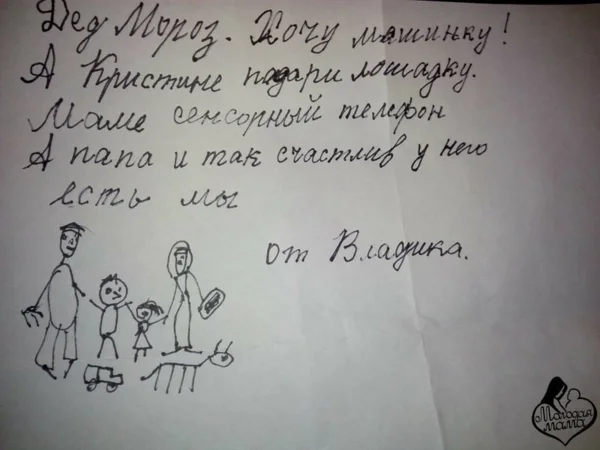 Дед Мороз. Хочу машинку!
А Кристине подари лошадку.
Маме сенсорный телефон
А папа и так счастлив у него
есть мы
от Владика.
Молодая
мама